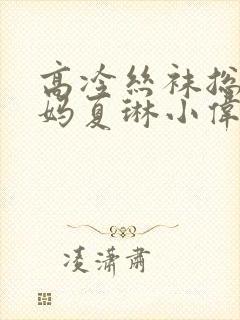 高冷丝袜总
妈夏琳小伟
凌潇肃